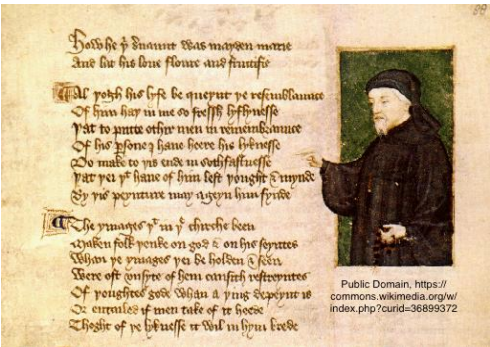 88
How he þi seruaunt was mayden marie
And lat his loue floure and fructifie
Al þogh his lyfe be queynt þe resemblaunce
Of him haþ in me so fressh lyflynesse
Þat to putte othir men in remembraunce
Of his persone I haue heere his lyknesse
Do make to þis ende in sothfastnesse
Þat þei þt haue of him lest þought & mynde
By þis peynture may ageyn him fynde
The ymages þt in þe chirche been
Maken folk þenke on god & on his seyntes
Whan þe ymages þei be holden & seen
Were oft vnsyte of hem causith restreyntes
Of þoughtes gode whan a þing depeynt is
Or entailed if men take of it heede
Thoght of þe lyknesse it wil in hym brede
Public Domain, https://
commons.wikimedia.org/w/
index.php?curid=36899372